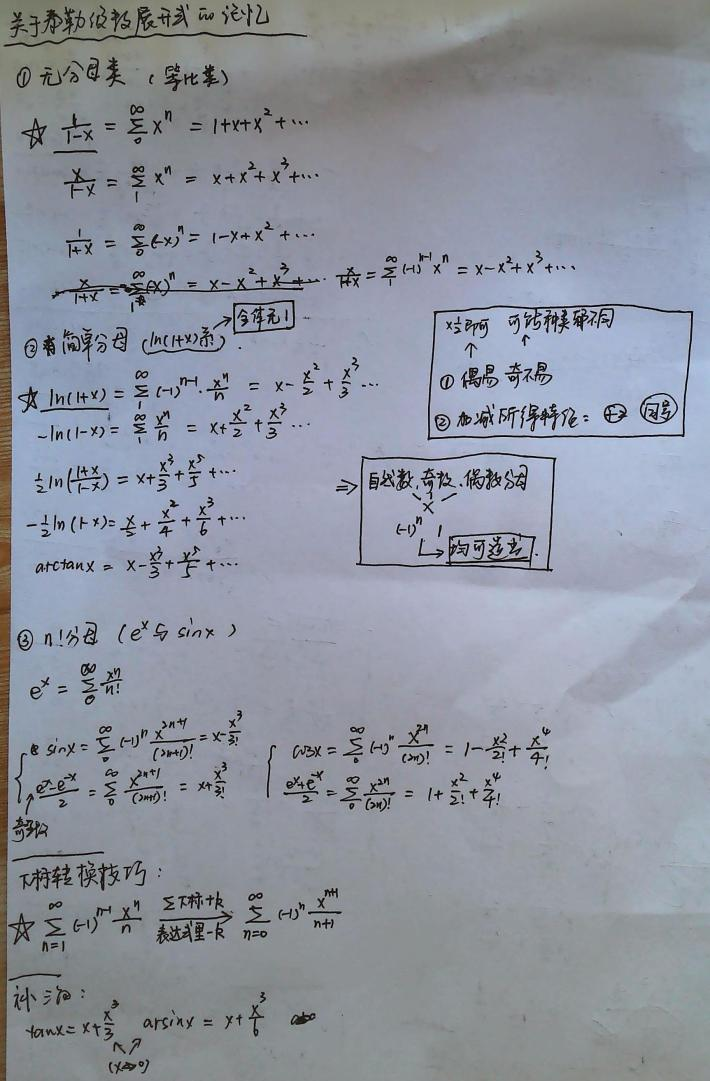 关于泰勒级数展开式的记忆
① 无分母类 (等比类)
☆ 1/(1-x) = ∑_0^∞ x^n = 1+x+x^2+…
x/(1-x) = ∑_1^∞ x^n = x+x^2+x^3+…
1/(1+x) = ∑_0^∞ (-x)^n = 1-x+x^2+…
x/(1+x) = ∑_1^∞ (-x)^n = x-x^2+x^3+… x/(1+x) = ∑_1^∞ (-1)^{n-1} x^n = x-x^2+x^3+…
② 有简单分母 (ln(1+x)系) → 全体无1
☆ ln(1+x) = ∑_1^∞ (-1)^{n-1}·x^n/n = x-x^2/2+x^3/3…
-ln(1-x) = ∑_1^∞ x^n/n = x+x^2/2+x^3/3…
1/2 ln((1+x)/(1-x)) = x+x^3/3+x^5/5+…
-1/2 ln(1-x) = x/2+x^2/4+x^3/6+…
arctanx = x-x^3/3+x^5/5+…
x½即可 可能种类都不同
↑ ↑
① 偶易 奇不易
② 加减所得特征:
⇒ 自然数、奇数、偶数分母
×
(-1)^n 1
↳ 均可造出.
③ n!分母 (e^x与sinx)
e^x = ∑_0^∞ x^n/n!
sinx = ∑_0^∞ (-1)^n x^{2n+1}/(2n+1)! = x-x^3/3!
(e^x-e^{-x})/2 = ∑_0^∞ x^{2n+1}/(2n+1)! = x+x^3/3!
cosx = ∑_0^∞ (-1)^n x^{2n}/(2n)! = 1-x^2/2!+x^4/4!
(e^x+e^{-x})/2 = ∑_0^∞ x^{2n}/(2n)! = 1+x^2/2!+x^4/4!
下标转换技巧:
☆ ∑_{n=1}^∞ (-1)^{n-1} x^n/n ∑下标+k → 表达式里-k ∑_{n=0}^∞ (-1)^n x^{n+1}/(n+1)
tanx = x+x^3/3 arsinx = x+x^3/6
(x→0)